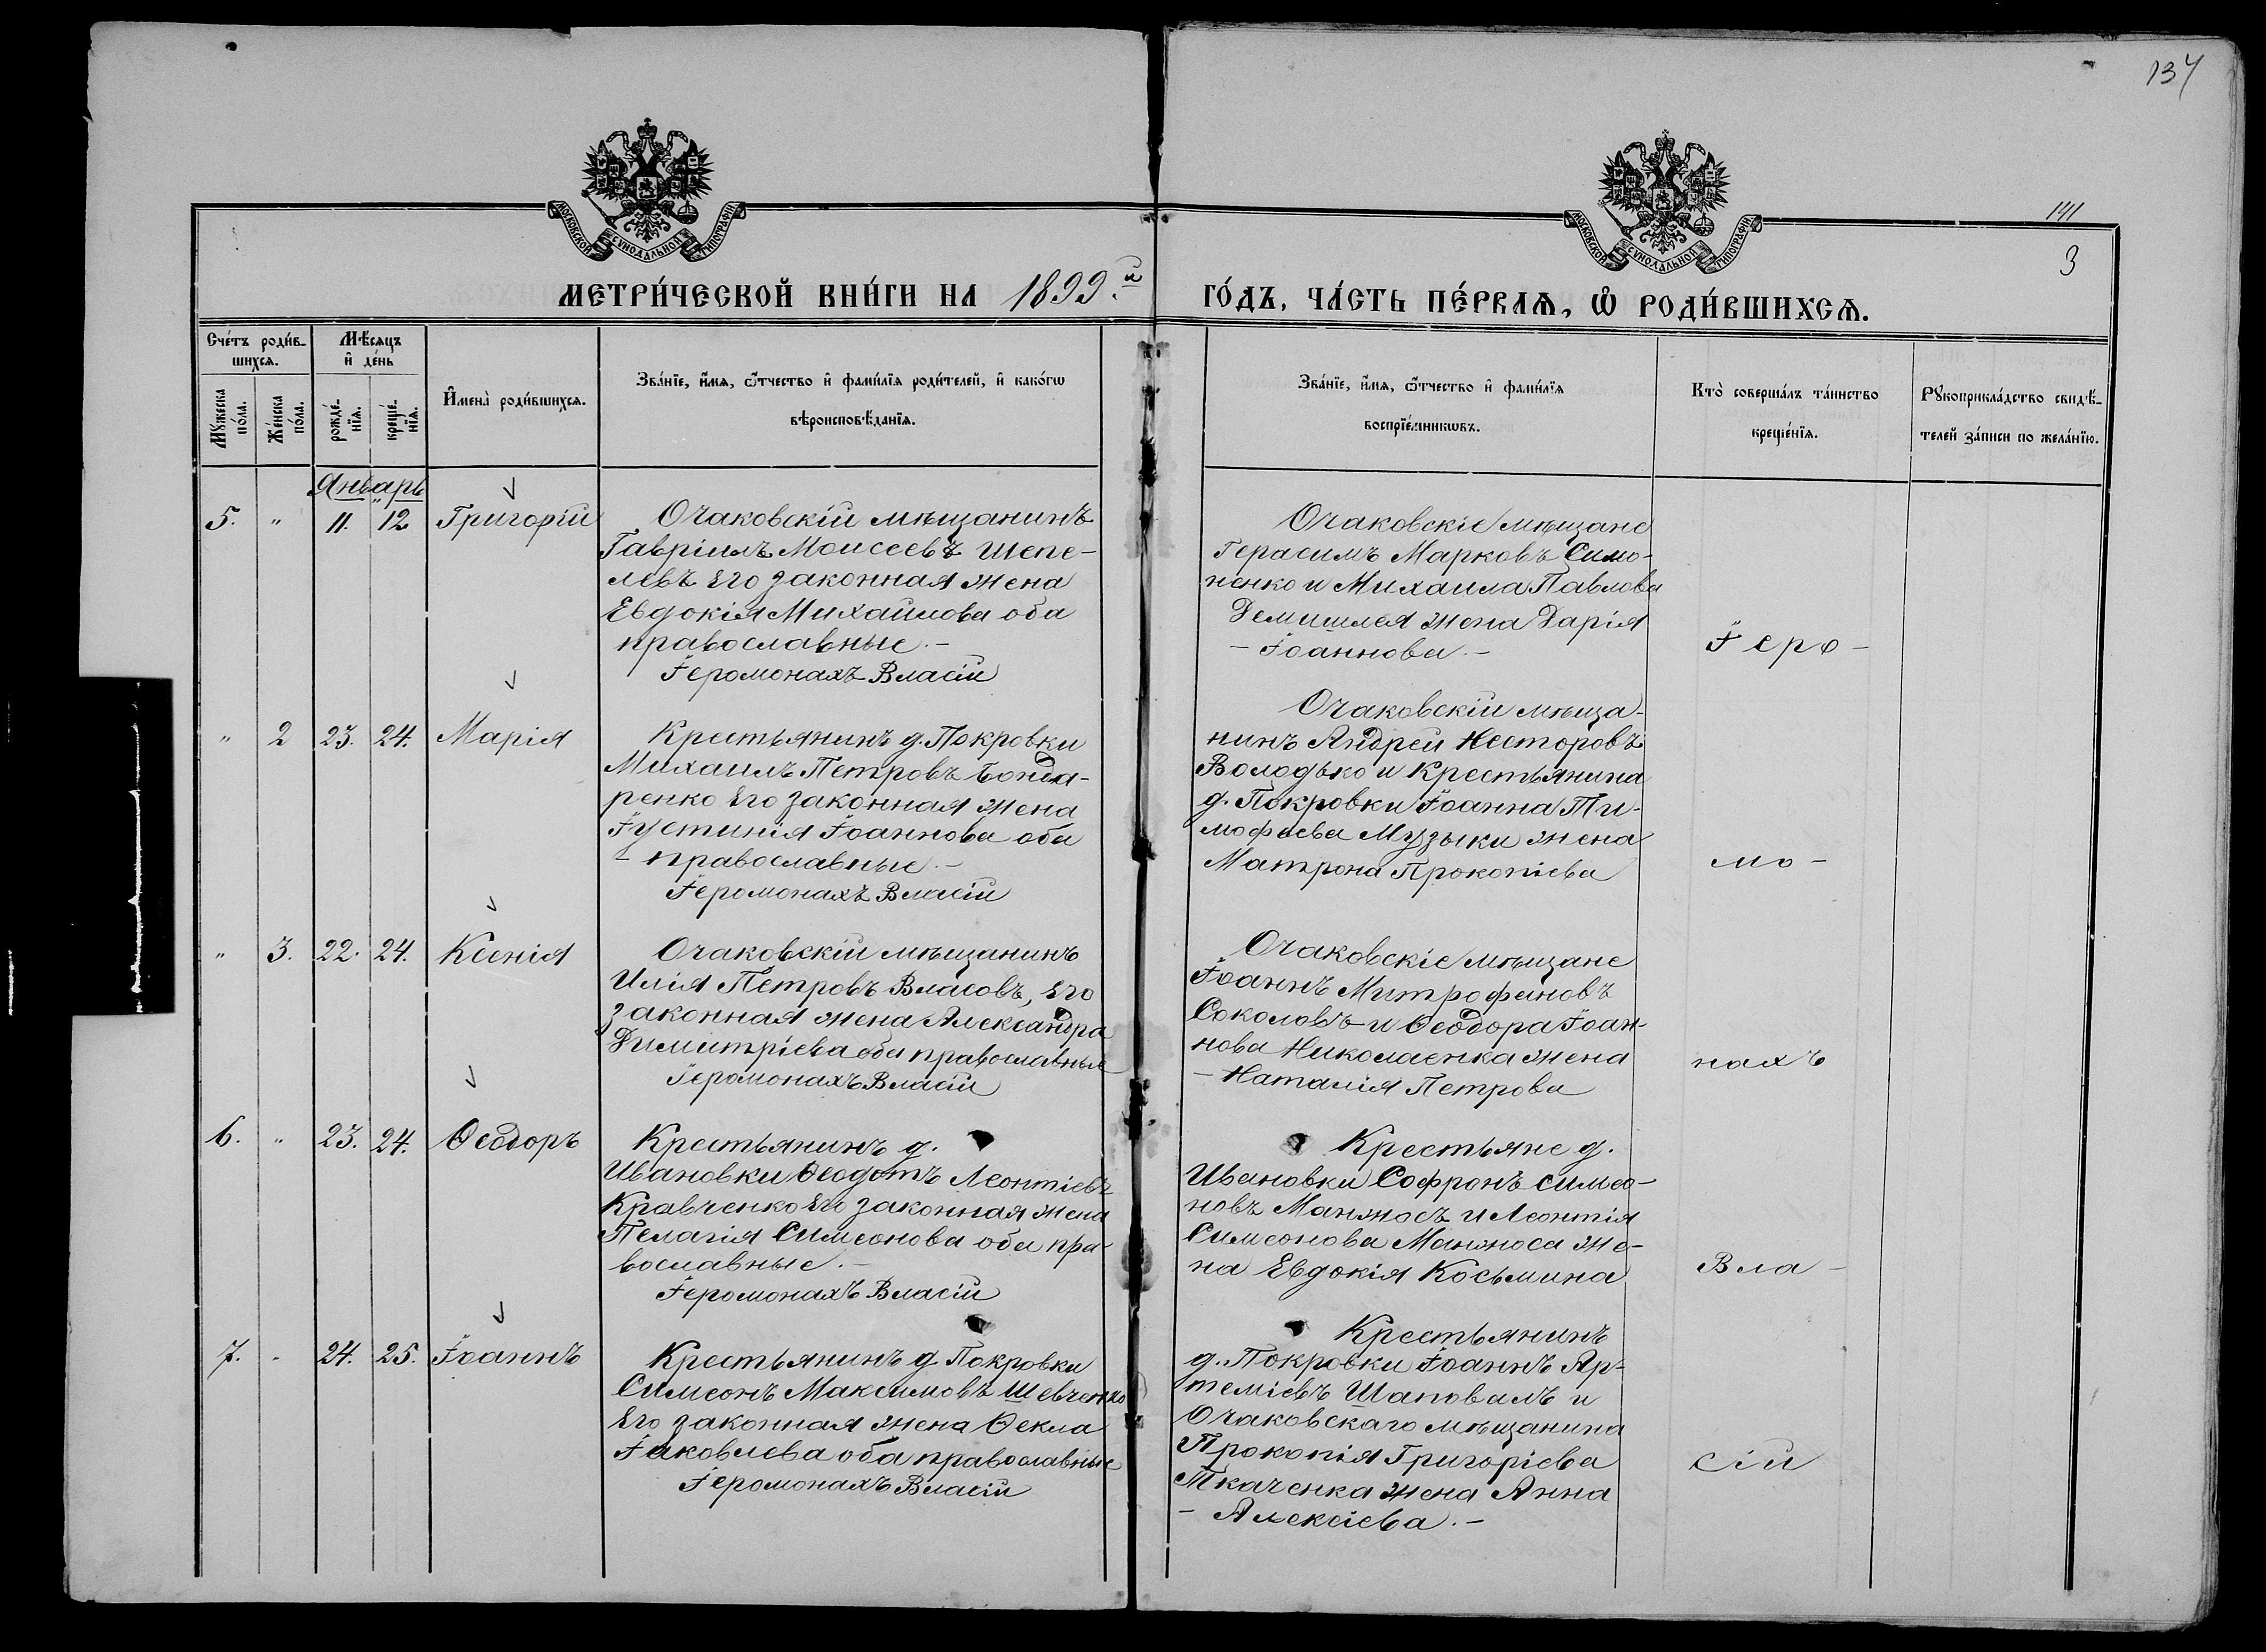 137
141
3
МОСКОВСКОЙ СѴНОДАЛЬНОЙ ТИПОГРАФІИ
МОСКОВСКОЙ СѴНОДАЛЬНОЙ ТИПОГРАФІИ
МЕТРИ́ЧЕСКОЙ КНИ́ГИ НА 1899.й ГО́ДЪ, ЧА́СТЬ ПЕ́РВАѦ, Ѽ РОДИ́ВШИХСѦ.
Сче́тъ роди́в-
шихсѧ.
Мѣ́сяцъ
и҆ де́нь
Мꙋ́жеска
по́ла.
Же́нска
по́ла.
рожде́-
нїѧ.
креще́-
нїѧ.
И҆мена̀ роди́вшихсѧ.
Зва́нїе, и҆́мѧ, ѻ҆́тчество и҆ фами́лїѧ роди́телей, и҆ како́гѡ
вѣроисповѣ́данїѧ.
Зва́нїе, и҆́мѧ, ѻ҆́тчество и҆ фами́лїѧ
воспрїе́мникѡвъ.
Кто̀ соверша́лъ та́инство
креще́нїѧ.
Рꙋкоприкла́дство свидѣ́-
телей за́писи по жела́нїю.
Январь
5. " 11. 12 Григорій
Очаковскій мѣщанинъ
Гавріилъ Моисеевъ Шепе-
левъ его законная жена
Евдокія Михайлова оба
православные.-
Іеромонахъ Власій
Очаковскіе мѣщане
Герасимъ Марковъ Симо-
ненко и Михаила Павлова
Демишлея жена Дарія
- Іоаннова.-
Іеро-
" 2 23. 24. Марія
Крестьянинъ д. Покровки
Михаилъ Петровъ Бонда-
ренко его законная жена
Іустинія Іоаннова оба
- православные.-
Іеромонахъ Власій
Очаковскій мѣща-
нинъ Андрей Несторовъ
Володько и крестьянина
д. Покровки Іоанна Ти-
мофеева Музыки жена
Матрона Прокопіева
мо-
" 3. 22. 24. Ксенія
Очаковскій мѣщанинъ
Илія Петровъ Власовъ, его
законная жена Александра
Димитріева оба православные
Іеромонахъ Власій
Очаковскіе мѣщане
Іоаннъ Митрофановъ
Соколовъ и Ѳеодора Іоан-
нова Николаенка жена
- Наталія Петрова
нахъ
6. " 23. 24. Ѳеодоръ
Крестьянинъ д.
Ивановки Ѳеодотъ Леонтіевъ
Кравченко его законная жена
Пелагія Симеонова оба пра-
вославные.-
Іеромонахъ Власій
Крестьяне д.
Ивановки Софронъ Симео-
новъ Манжосъ и Леонтія
Симеонова Манжоса же-
на Евдокія Косьмина
Вла-
7. " 24. 25. Іоаннъ
Крестьянинъ д. Покровки
Симеонъ Максимовъ Шевченко
его законная жена Ѳекла
Іаковлева оба православные
Іеромонахъ Власій
Крестьянинъ
д. Покровки Іоаннъ Ар-
теміевъ Шаповалъ и
Очаковскаго мѣщанина
Прокопія Григоріева
Ткаченка жена Анна
- Алексіева.-
сій